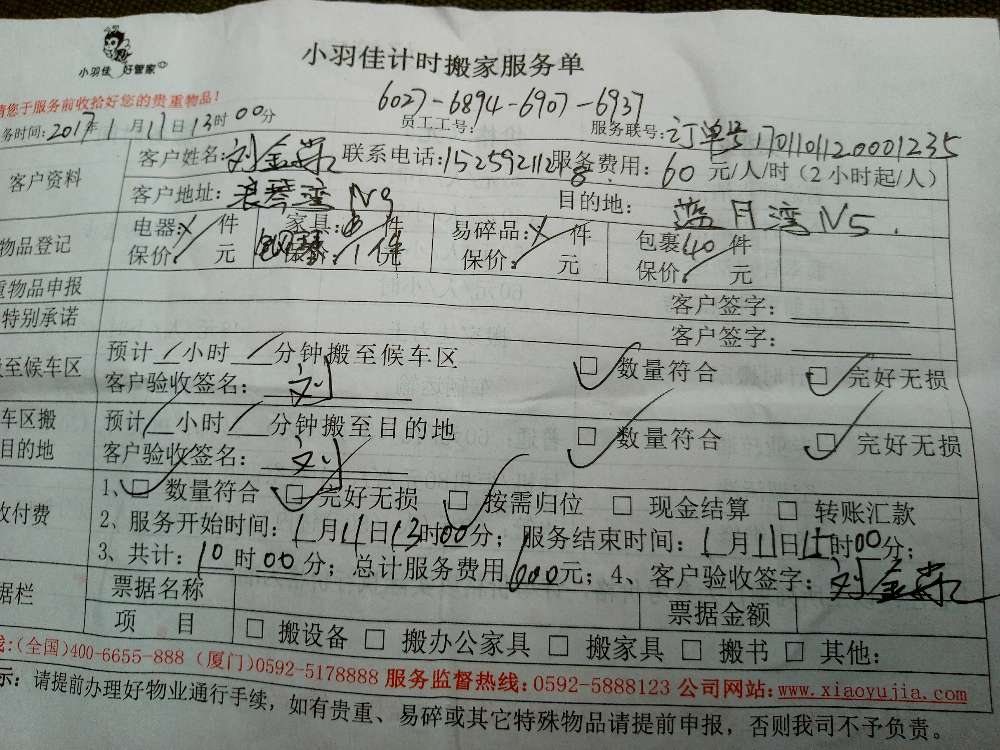 小羽佳 好管家
小羽佳计时搬家服务单
请您于服务前收拾好您的贵重物品!
6027-6894-6907-6937
务时间:2017年1月11日13时00分 员工工号: 服务联号:订单号1701101120001235
客户资料 客户姓名:刘金 联系电话:15259211218 服务费用:60元/人/时(2小时起/人)
客户地址:浪琴湾 N9 目的地:蓝月湾N5
物品登记 电器: 件 家具: 件 易碎品: 件 包裹40件
保价: 元 1件 保价: 元 保价: 元
重物品申报 客户签字:
特别承诺 客户签字:
至候车区 预计 小时 分钟搬至候车区 数量符合 完好无损
客户验收签名:刘
车区搬 预计 小时 分钟搬至目的地 数量符合 完好无损
目的地 客户验收签名:刘
收付费 1、 数量符合 完好无损 按需归位 现金结算 转账汇款
2、服务开始时间:1月11日13时00分;服务结束时间:1月11日15时00分;
3、共计:10时00分;总计服务费用600元;4、客户验收签字:刘金
据栏 票据名称 票据金额
项 目 搬设备 搬办公家具 搬家具 搬书 其他:
线:(全国)400-6655-888 (厦门)0592-5178888 服务监督热线:0592-5888123 公司网站:www.xiaoyujia.com
示:请提前办理好物业通行手续,如有贵重、易碎或其它特殊物品请提前申报,否则我司不予负责。